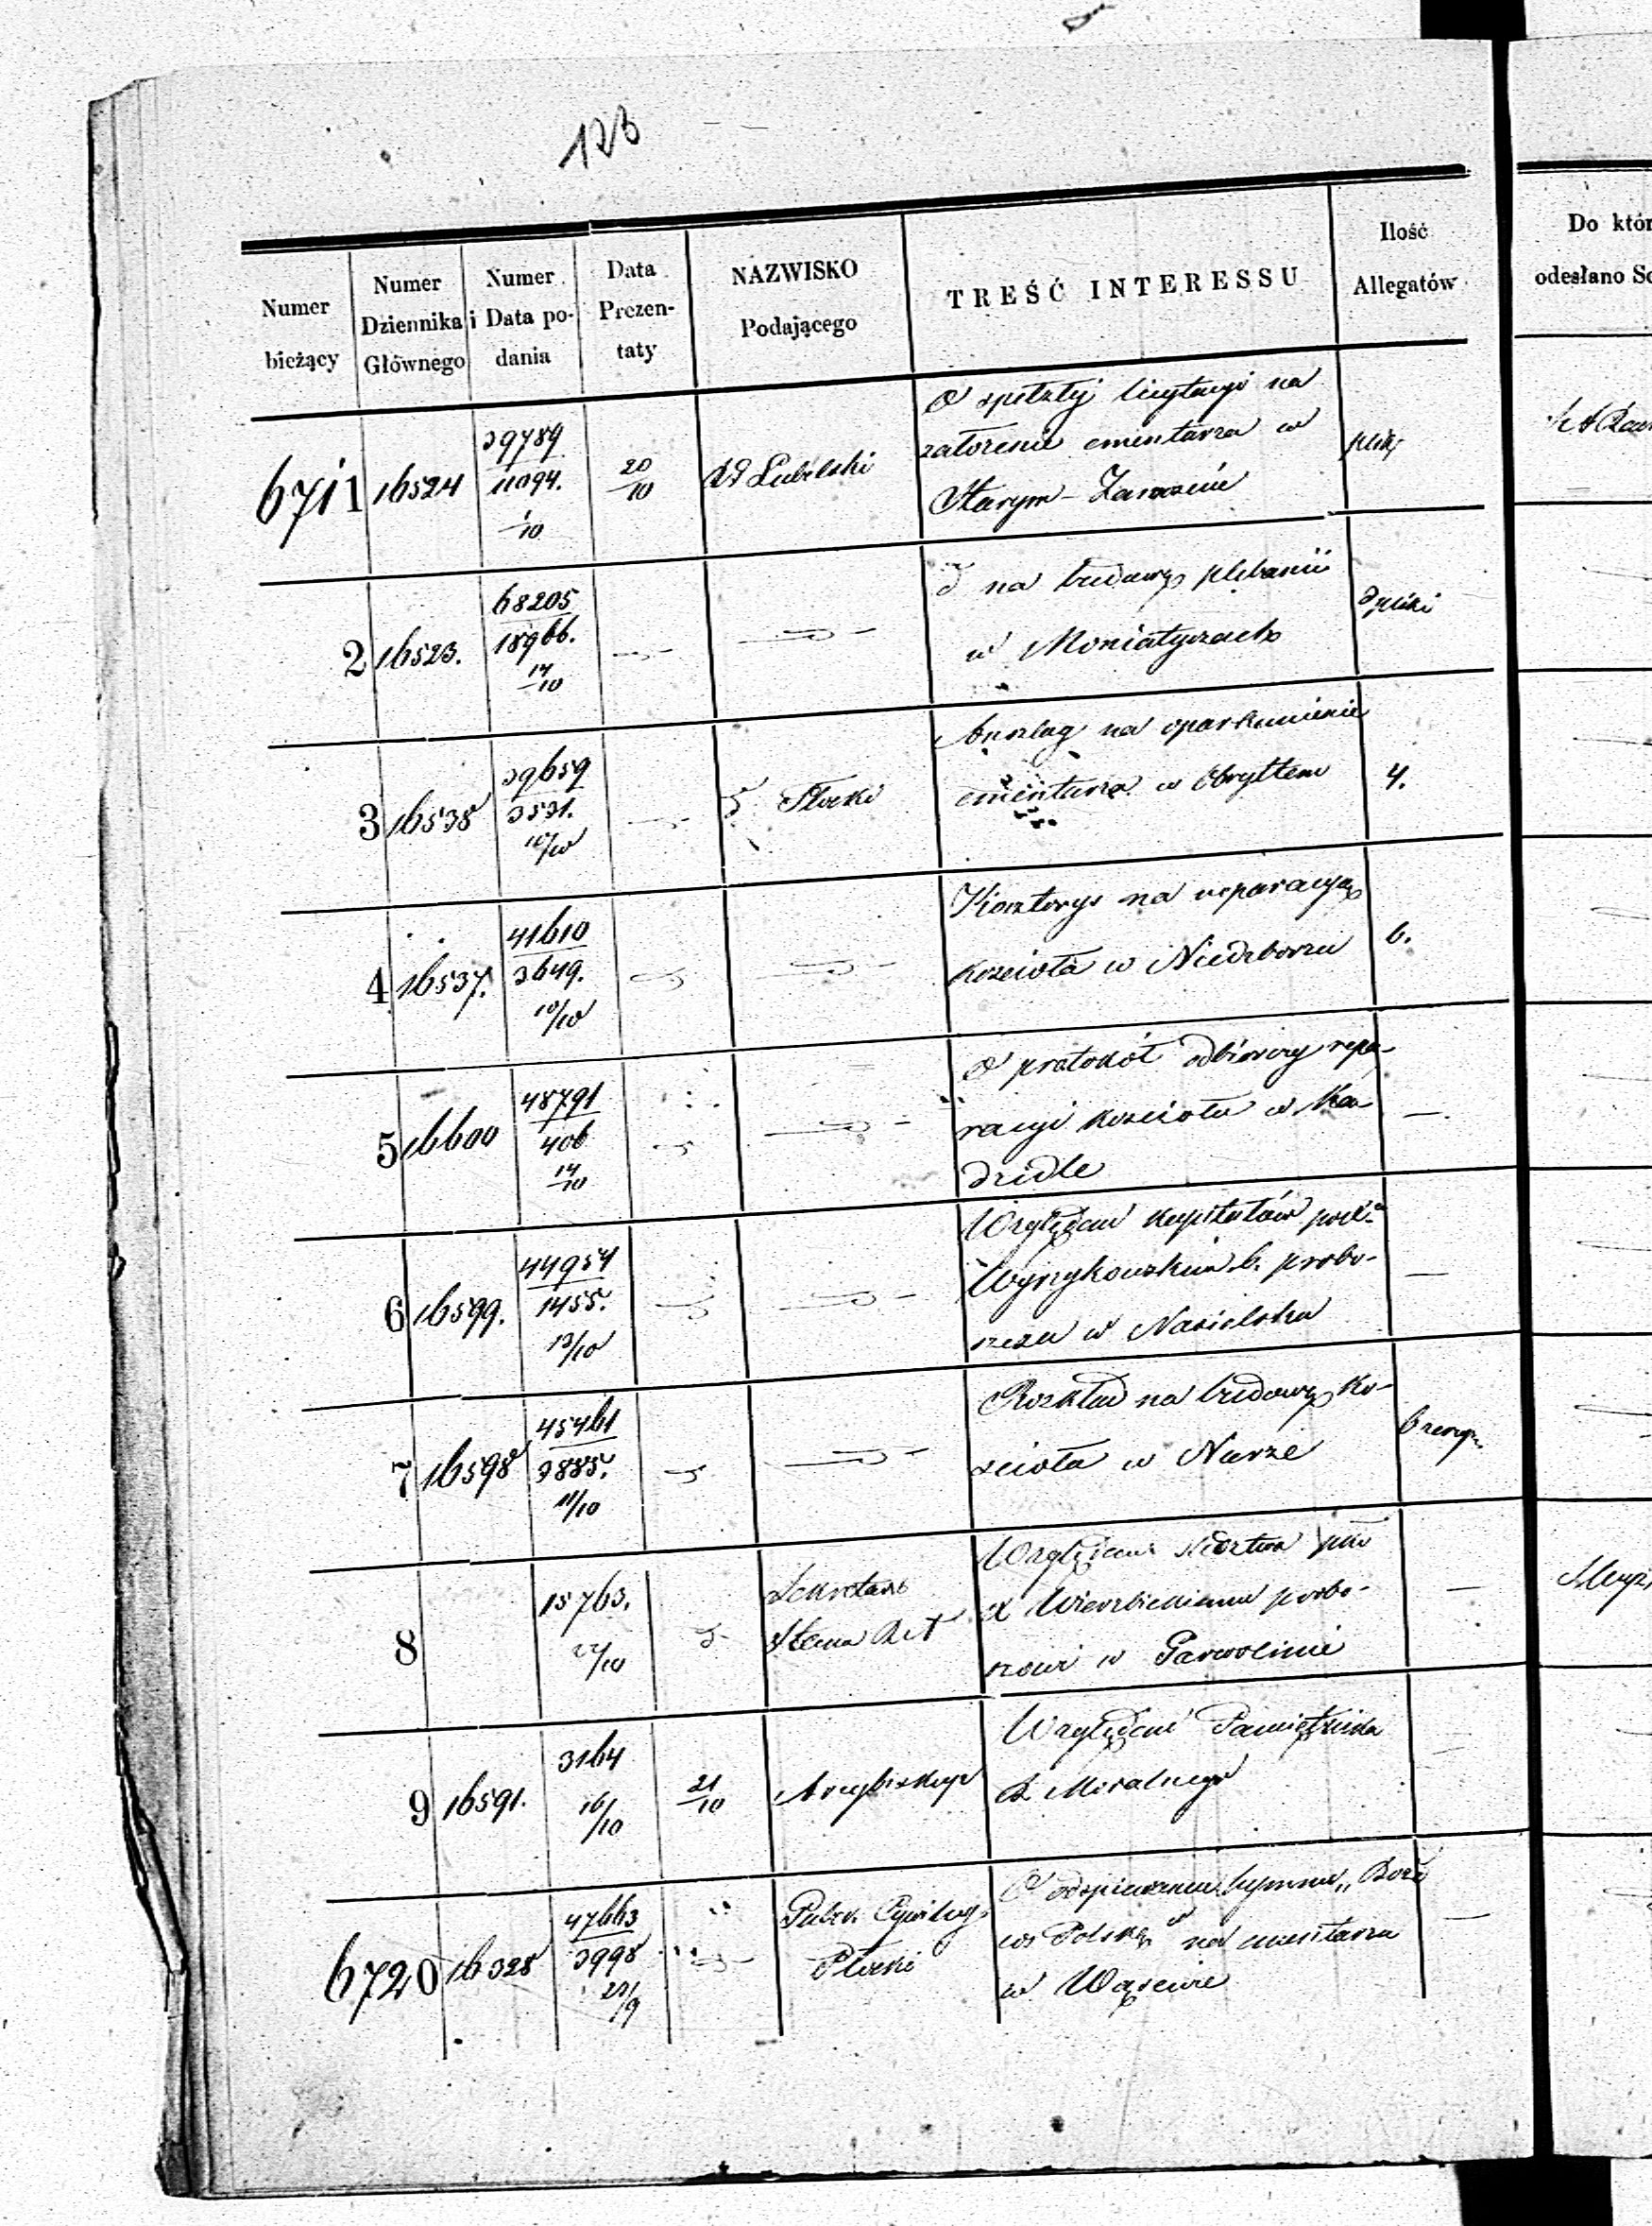 123
Numer bieżący
Numer Dziennika Głównego
Numer i Data podania
Data Prezentaty
NAZWISKO Podającego
TREŚĆ INTERESSU
Ilość Allegatów
Do któr
odesłano Se
6711 16524 39789 11094. 1/10 20/10 Lubelski
O spełzłej licytacyi na
założenie cmentarza w
Starym-Zamościu
plik
2 16523. 68205 18966. 14/10
na budowę plebanii
w Moniatyczach
3 16538 39659 3531. 10/10 Płocki
Anszlag na oparkanienie
cmentarza w Obryttem
4.
4 16537. 41610 3649. 10/10
Kosztorys na reparacyą
kościoła w Niedzborzu
6.
5 16600 48791 406 14/10
O protokół odbiorczy repa-
racyi kościoła w Ka
dzidle
—
6 16599. 44954 1455. 13/10
Względem kapitałów
Wyrzykowskim b. probo-
szczu w Nasielsku
—
7 16598 45461 3885. 11/10
Rozkład na budowę ko-
ścioła w Nurze
8 15763. 22/10 Sekretarz
Stanu
Względem
X Wierzbickiemu probo-
szczowi w Garwolinie
—
9 16591. 3164 16/10 21/10 Arcybiskup
Względem Pamiętnika
R. Moralnego
—
6720 16328 47663 3998 28/9 Guber. Cywilny
Płocki
O odspiewaniu hymnu „Boże
coś Polskę" na cmentarzu
w Wąsewie
—